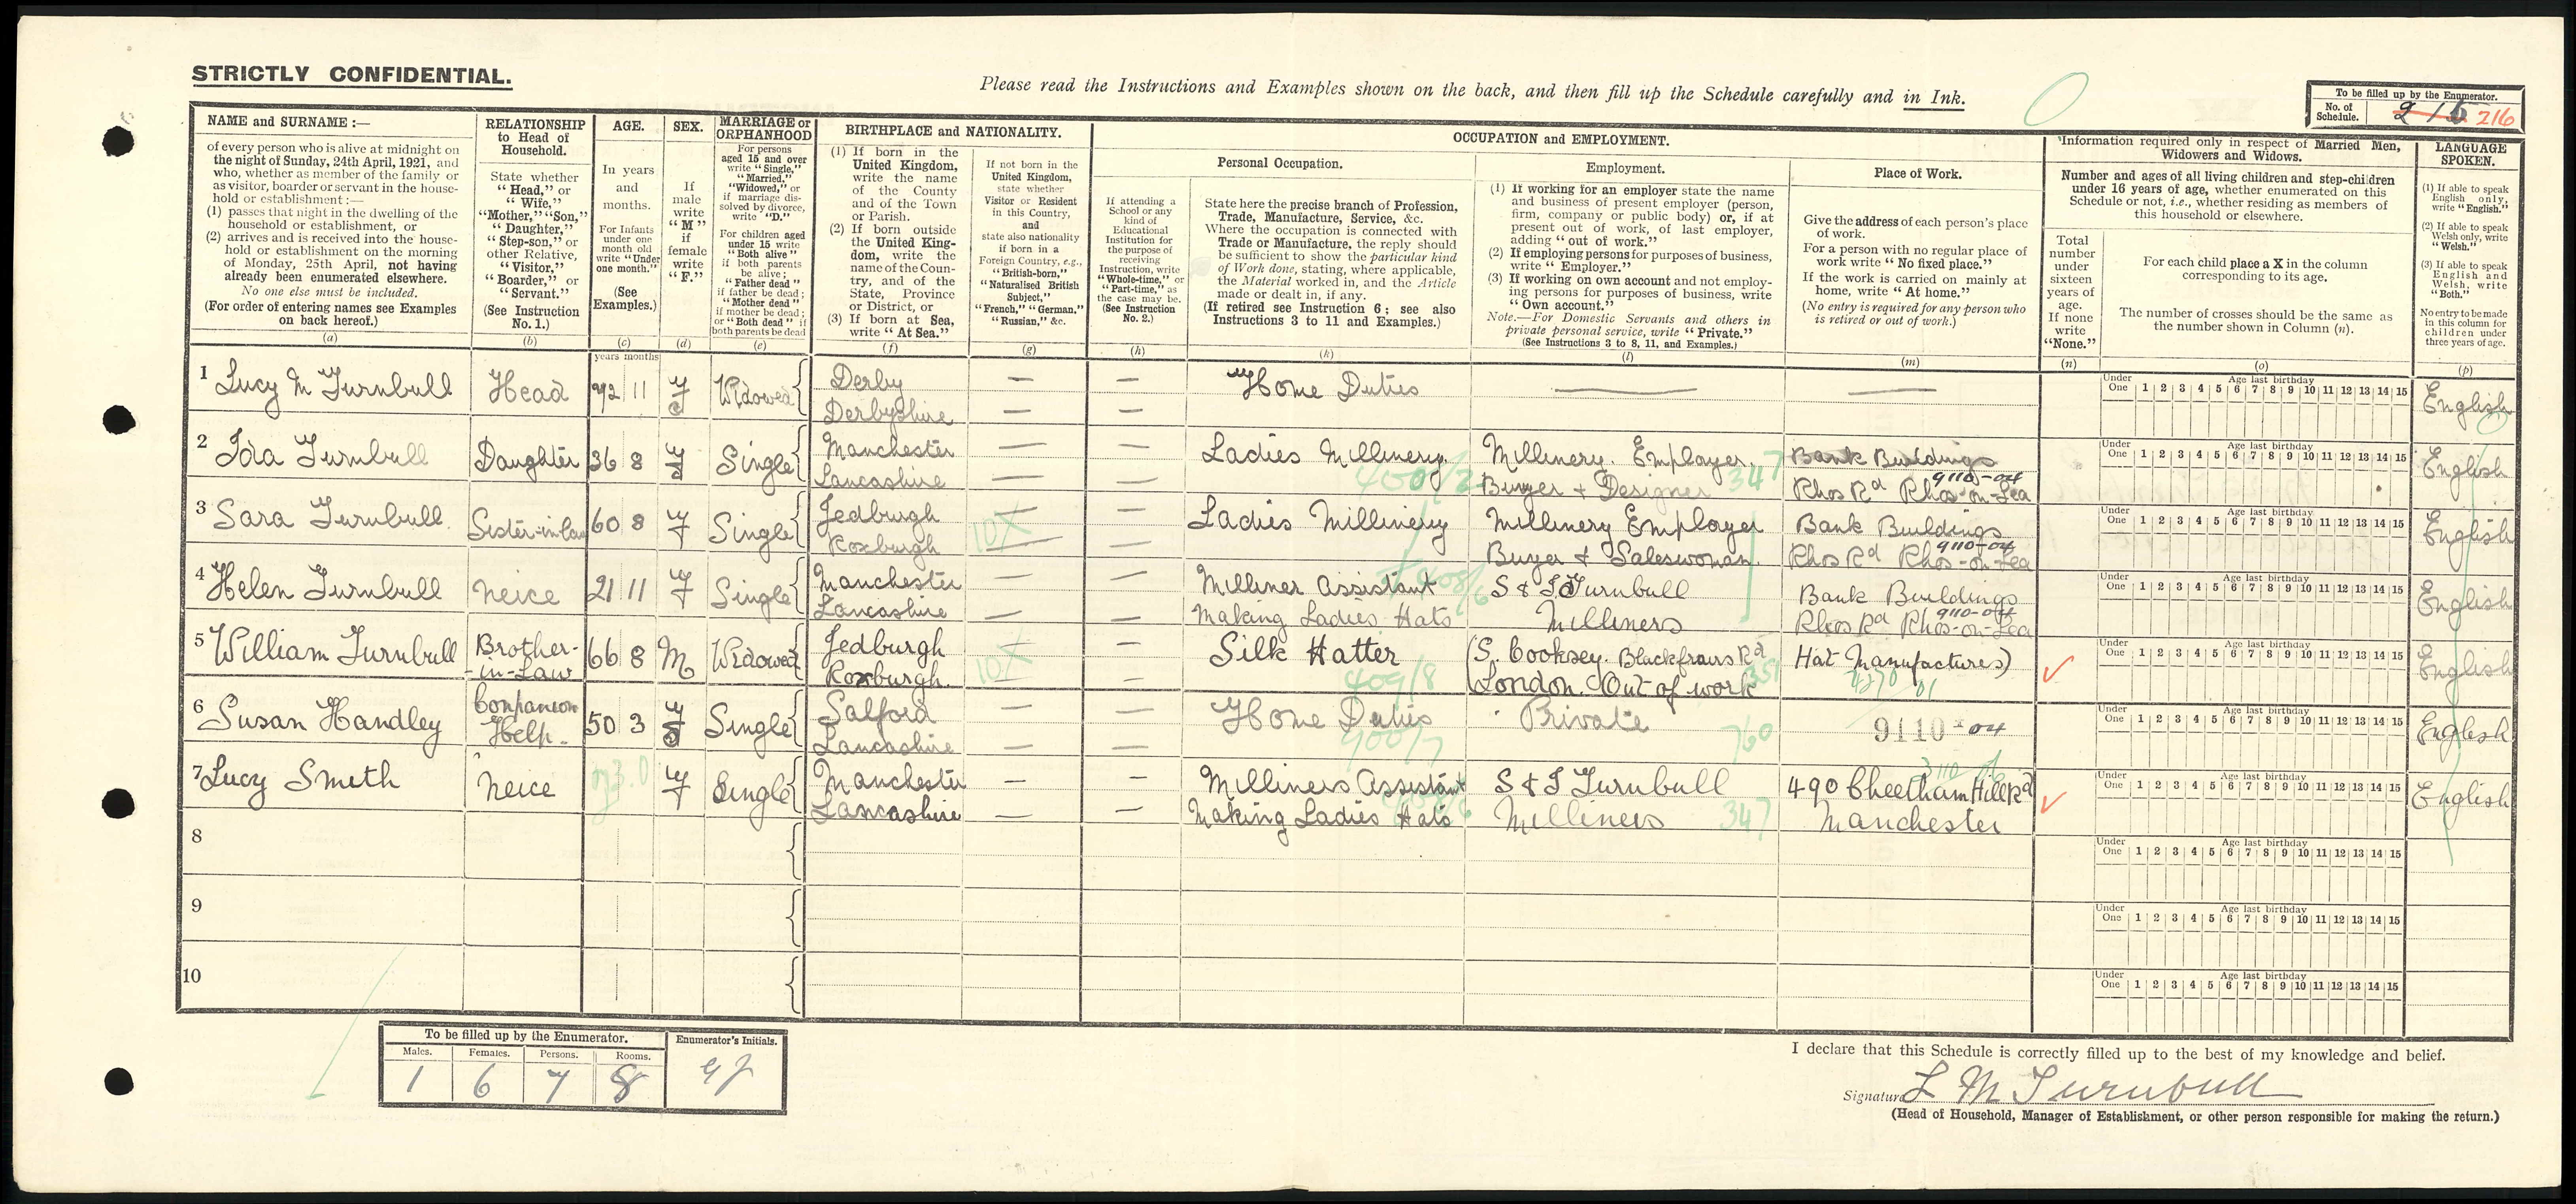 STRICTLY CONFIDENTIAL.
Please read the Instructions and Examples shown on the back, and then fill up the Schedule carefully and in Ink.
To be filled up by the Enumerator.
No. of Schedule. 215 216
NAME and SURNAME :—
of every person who is alive at midnight on
the night of Sunday, 24th April, 1921, and
who, whether as member of the family or
as visitor, boarder or servant in the house-
hold or establishment :—
(1) passes that night in the dwelling of the
household or establishment, or
(2) arrives and is received into the house-
hold or establishment on the morning
of Monday, 25th April, not having
already been enumerated elsewhere.
No one else must be included.
(For order of entering names see Examples
on back hereof.)
(a)
RELATIONSHIP
to Head of
Household.
State whether
"Head," or
"Wife,"
"Mother," "Son,"
"Daughter,"
"Step-son," or
other Relative,
"Visitor,"
"Boarder," or
"Servant."
(See Instruction
No. 1.)
(b)
AGE.
In years
and
months.
For Infants
under one
month old
write "Under
one month."
(See
Examples.)
(c)
years months
SEX.
If
male
write
"M"
if
female
write
"F."
(d)
MARRIAGE or
ORPHANHOOD
For persons
aged 15 and over
write "Single,"
"Married,"
"Widowed," or
if marriage dis-
solved by divorce,
write "D."
For children aged
under 15 write
"Both alive"
if both parents
be alive;
"Father dead"
if father be dead;
"Mother dead"
if mother be dead;
or "Both dead" if
both parents be dead
(e)
BIRTHPLACE and NATIONALITY.
(1) If born in the
United Kingdom,
write the name
of the County
and of the Town
or Parish.
(2) If born outside
the United King-
dom, write the
name of the Coun-
try, and of the
State, Province
or District, or
(3) If born at Sea,
write "At Sea."
(f)
If not born in the
United Kingdom,
state whether
Visitor or Resident
in this Country,
and
state also nationality
if born in a
Foreign Country, e.g.,
"British-born,"
"Naturalised British
Subject,"
"French," "German,"
"Russian," &c.
(g)
OCCUPATION and EMPLOYMENT.
If attending a
School or any
kind of
Educational
Institution for
the purpose of
receiving
Instruction, write
"Whole-time," or
"Part-time," as
the case may be.
(See Instruction
No. 2.)
(h)
Personal Occupation.
State here the precise branch of Profession,
Trade, Manufacture, Service, &c.
Where the occupation is connected with
Trade or Manufacture, the reply should
be sufficient to show the particular kind
of Work done, stating, where applicable,
the Material worked in, and the Article
made or dealt in, if any.
(If retired see Instruction 6; see also
Instructions 3 to 11 and Examples.)
(k)
Employment.
(1) If working for an employer state the name
and business of present employer (person,
firm, company or public body) or, if at
present out of work, of last employer,
adding "out of work."
(2) If employing persons for purposes of business,
write "Employer."
(3) If working on own account and not employ-
ing persons for purposes of business, write
"Own account."
Note.—For Domestic Servants and others in
private personal service, write "Private."
(See Instructions 3 to 8, 11, and Examples.)
(l)
Place of Work.
Give the address of each person's place
of work.
For a person with no regular place of
work write "No fixed place."
If the work is carried on mainly at
home, write "At home."
(No entry is required for any person who
is retired or out of work.)
(m)
Information required only in respect of Married Men,
Widowers and Widows.
Number and ages of all living children and step-children
under 16 years of age, whether enumerated on this
Schedule or not, i.e., whether residing as members of
this household or elsewhere.
Total
number
under
sixteen
years of
age.
If none
write
"None."
(n)
For each child place a X in the column
corresponding to its age.
The number of crosses should be the same as
the number shown in Column (n).
(o)
LANGUAGE
SPOKEN.
(1) If able to speak
English only,
write "English."
(2) If able to speak
Welsh only, write
"Welsh."
(3) If able to speak
English and
Welsh, write
"Both."
No entry to be made
in this column for
children under
three years of age.
(p)
1 Lucy M Turnbull Head 72 11 F Widowed Derby — — Home Duties — — English
Derbyshire — —
Under One Age last birthday 1 2 3 4 5 6 7 8 9 10 11 12 13 14 15
2 Ida Turnbull Daughter 36 8 F Single Manchester — — Ladies Millinery Millinery. Employer. 347 Bank Buildings English
Lancashire — — 400/2 Buyer & Designer Rhos Rd Rhos-on-Sea 9110-04
Under One Age last birthday 1 2 3 4 5 6 7 8 9 10 11 12 13 14 15
3 Sara Turnbull Sister-in-law 60 8 F Single Jedburgh 10X — Ladies Millinery Millinery Employer Bank Buildings English
Roxburgh — — Buyer & Saleswoman. Rhos Rd Rhos-on-Sea 9110-04
Under One Age last birthday 1 2 3 4 5 6 7 8 9 10 11 12 13 14 15
4 Helen Turnbull Neice 21 11 F Single Manchester — Milliner Assistant 408/6 S & I Turnbull Bank Buildings English
Lancashire — — Making Ladies Hats Milliners Rhos Rd Rhos-on-Sea 9110-04
Under One Age last birthday 1 2 3 4 5 6 7 8 9 10 11 12 13 14 15
5 William Turnbull Brother- 66 8 M Widowed Jedburgh 10X — Silk Hatter (S. Cooksey. Blackfriars Rd Hat Manufactures) English
in-Law Roxburgh. — — 409/8 London. Out of work 351
Under One Age last birthday 1 2 3 4 5 6 7 8 9 10 11 12 13 14 15
6 Susan Handley Companion 50 3 F Single Salford — — Home Duties Private 9110-04 English
Help. Lancashire — — 900/7 760
Under One Age last birthday 1 2 3 4 5 6 7 8 9 10 11 12 13 14 15
7 Lucy Smith Neice 23.0 F Single Manchester — — Milliners Assistant S & I Turnbull 490 Cheetham Hill Rd English
Lancashire — — Making Ladies Hats Milliners 347 Manchester
Under One Age last birthday 1 2 3 4 5 6 7 8 9 10 11 12 13 14 15
8
Under One Age last birthday 1 2 3 4 5 6 7 8 9 10 11 12 13 14 15
9
Under One Age last birthday 1 2 3 4 5 6 7 8 9 10 11 12 13 14 15
10
Under One Age last birthday 1 2 3 4 5 6 7 8 9 10 11 12 13 14 15
To be filled up by the Enumerator. Enumerator's Initials.
Males. Females. Persons. Rooms.
1 6 7 8
I declare that this Schedule is correctly filled up to the best of my knowledge and belief.
Signature L M Turnbull
(Head of Household, Manager of Establishment, or other person responsible for making the return.)